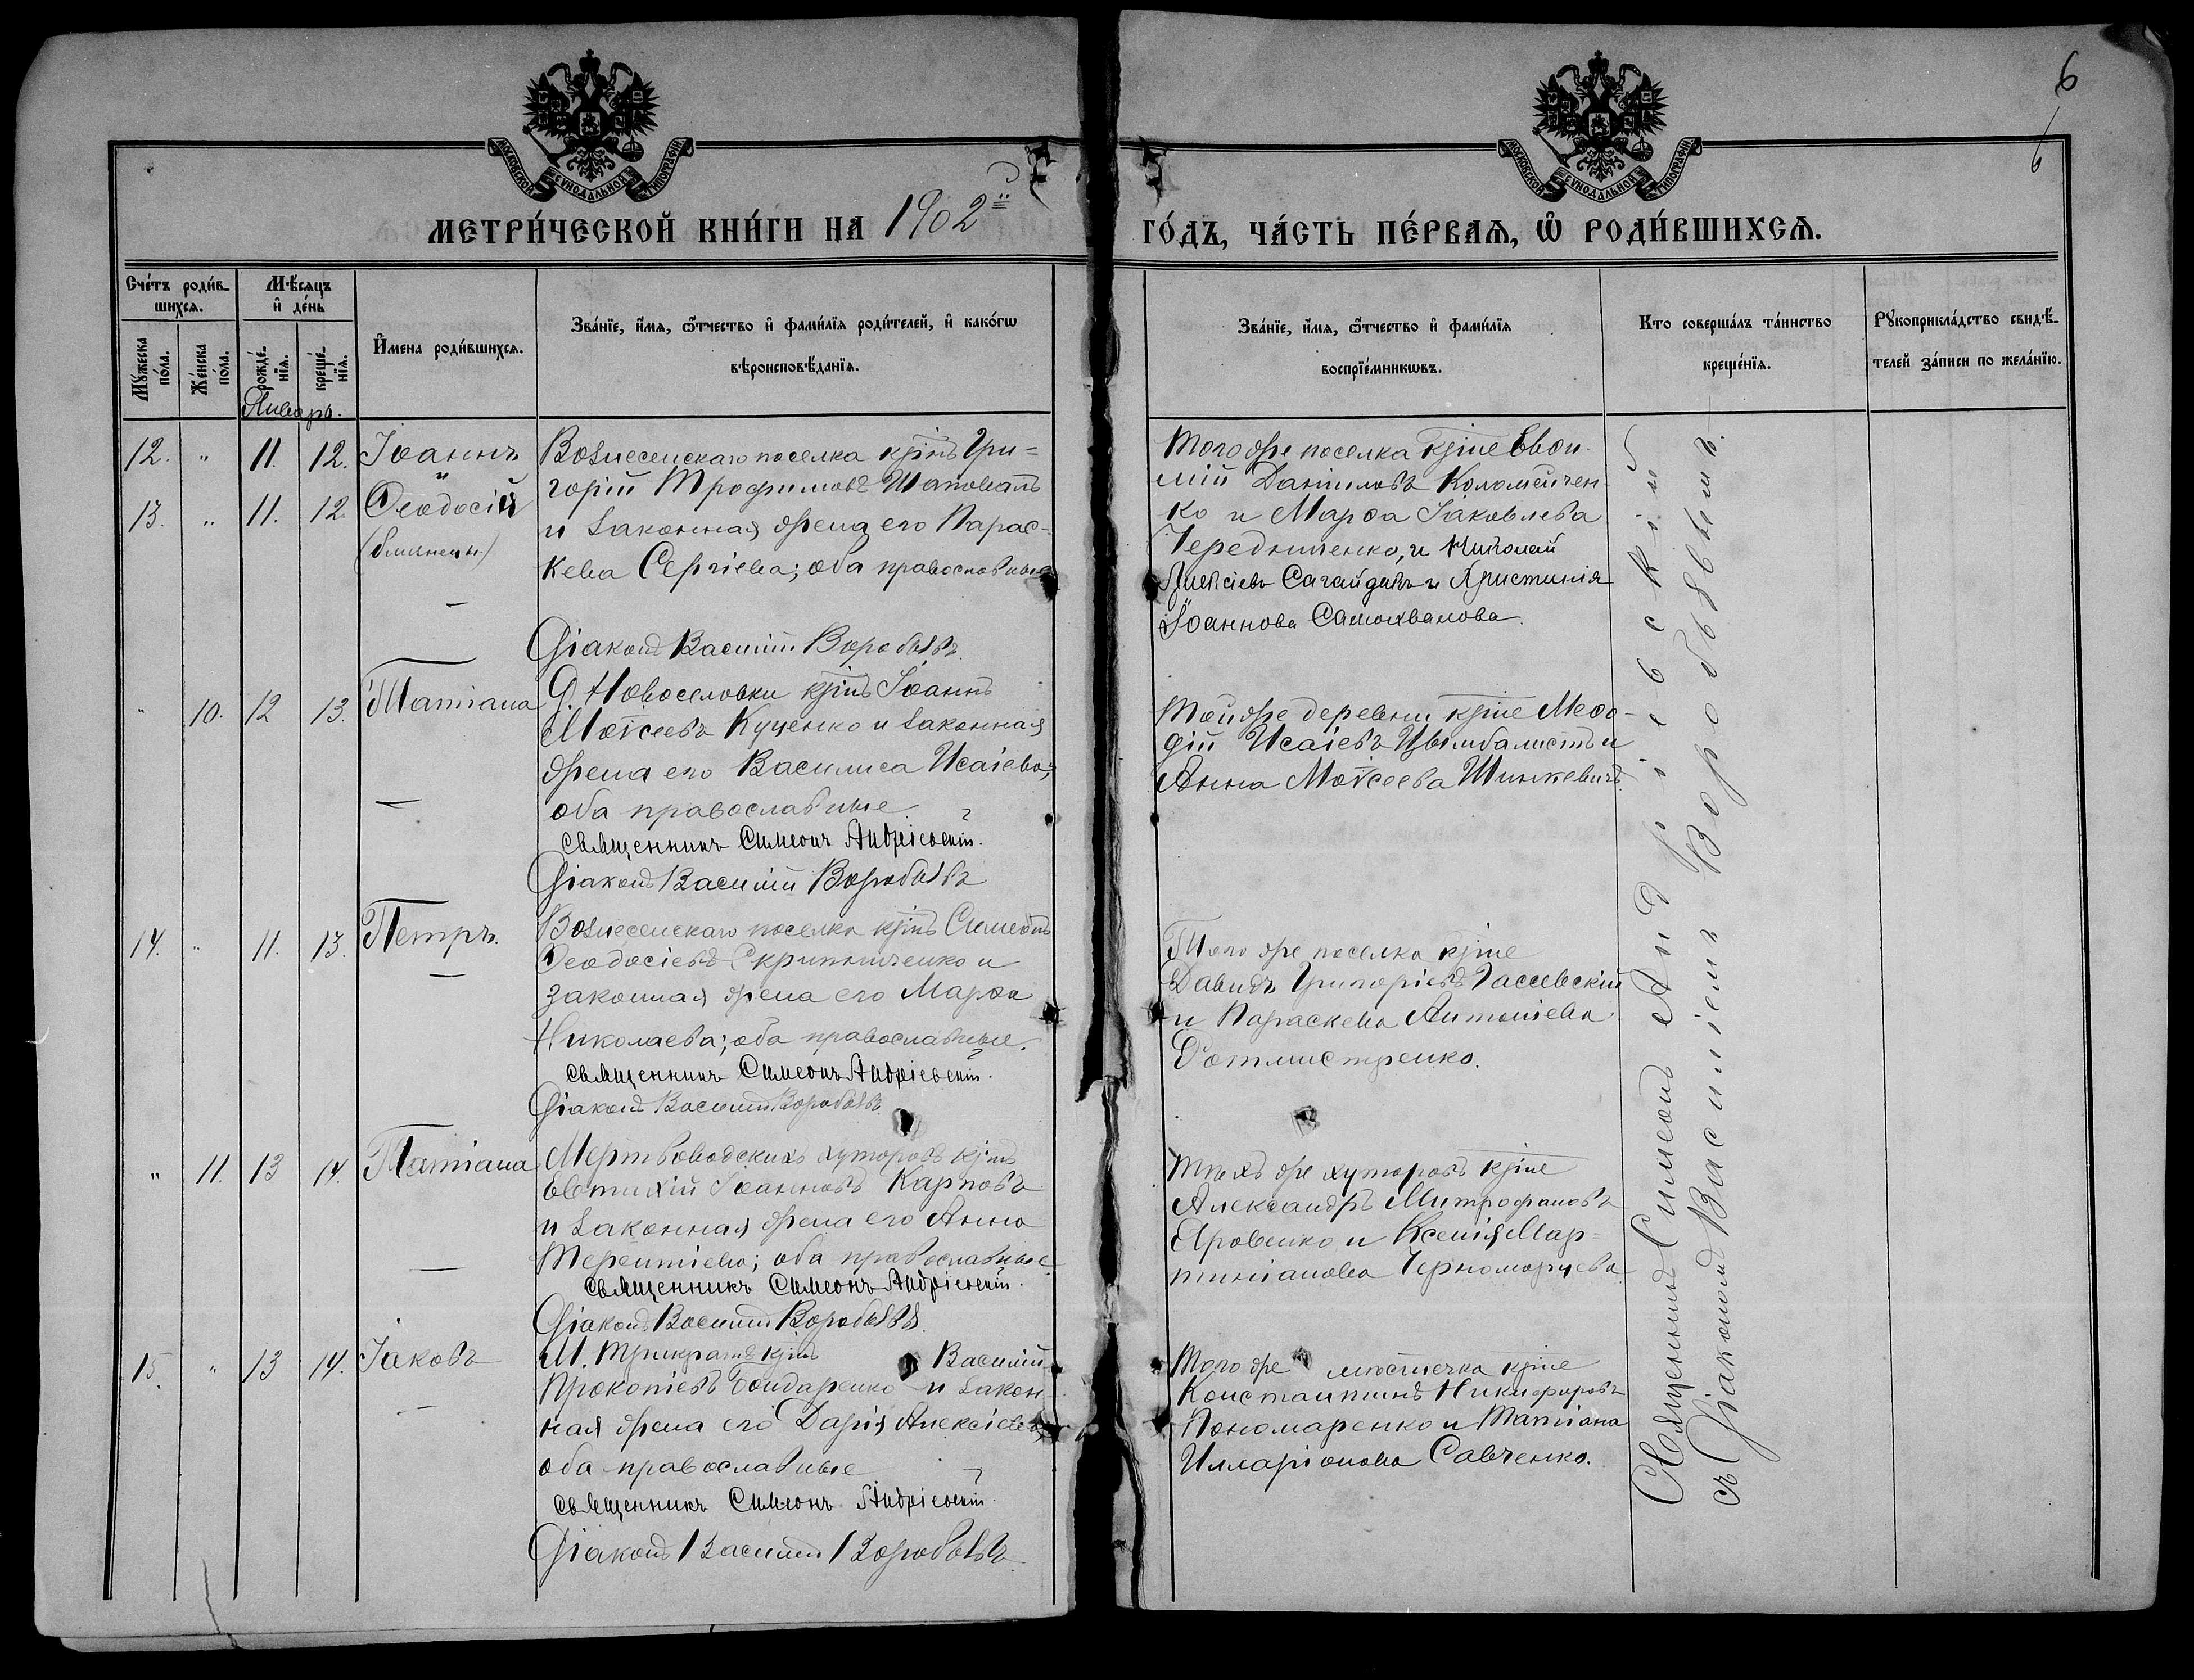 6
6
МОСКОВСКОЙ СѴНОДАЛЬНОЙ ТИПОГРАФІИ
МОСКОВСКОЙ СѴНОДАЛЬНОЙ ТИПОГРАФІИ
МЕТРИ́ЧЕСКОЙ КНИ́ГИ НА 1902й
ГО́ДЪ, ЧА́СТЬ ПЕ́РВАѦ, Ѽ РОДИ́ВШИХСѦ.
Сче́тъ роди́в-
шихсѧ.
Мꙋ́жеска по́ла.
Же́нска по́ла.
Мѣ́сѧцъ
и҆ де́нь
рожде́-
нїѧ.
креще́-
нїѧ.
Январь.
И҆мена роди́вшихсѧ.
Зва́нїе, и҆́мѧ, ѻ҆́тчество и҆ фами́лїѧ роди́телей, и҆ како́гѡ
вѣроисповѣ́данїѧ.
Зва́нїе, и҆́мѧ, ѻ҆́тчество и҆ фами́лїѧ
воспрїе́мникѡвъ.
Кто соверша́лъ та́инство
креще́нїѧ.
Рꙋкоприкла́дство свидѣ́-
телей за́писи по жела́нїю.
12. " 11. 12. Іоаннъ
и
13. " 11. 12. Ѳеодосій
(близнецы)
Вознесенскаго поселка крнъ Гри=
горій Трофимовъ Шаповалъ
и законная жена его Парас-
кева Сергіева; оба православные
Діаконъ Василій Воробьевъ
Того же поселка крне Евѳи-
мій Даніиловъ Коломейчен-
ко и Марѳа Іаковлева
Чередниченко, и Николай
Алексіевъ Сагайдакъ и Христинія
Іоаннова Самохвалова.
" 10. 12 13. Татіана
Д. Новоселовки крнъ Іоаннъ
Моѵсеевъ Куценко и законная
жена его Василиса Исаіева;
оба православные
Священникъ Симеонъ Андріевскій.
Діаконъ Василій Воробьевъ
Той же деревни крне Меѳо-
дій Исаіевъ Цымбалистъ и
Анна Моѵсеева Шинкевичъ.
14. " 11. 13. Петръ.
Вознесенскаго поселка крнъ Симеонъ
Ѳеодосіевъ Скрипниченко и
законная жена его Марѳа
Николаева; оба православные.
Священникъ Симеонъ Андріевскій.
Діаконъ Василій Воробьевъ
Того же поселка крне
Давидъ Григоріевъ
и Параскева Антоніева
Ротмистренко.
" 11. 13 14. Татіана
Мертвоводскихъ хуторовъ крнъ
Евтихій Іоанновъ Карповъ
и законная жена его Анна
Терентіева; оба православные
Священникъ Симеонъ Андріевскій.
Діаконъ Василій Воробьевъ.
Тѣхъ же хуторовъ крне
Александръ Митрофановъ
Яровенко и Ксенія Мар=
тиніанова Черноморцева.
15. " 13 14. Іаковъ
М. Трикратъ крнъ Василій
Прокопіевъ Бондаренко и закон-
ная жена его Дарія Алексіева;
оба православные
Священникъ Симеонъ Андріевскій.
Діаконъ Василій Воробьевъ
Того же мѣстечка крне
Константинъ Никифоровъ
Пономаренко и Татіана
Илларіонова Савченко.
Священникъ Симеонъ Андріевскій
съ Діакономъ Василіемъ Воробьевымъ.